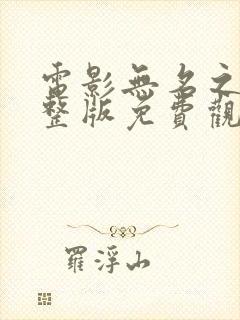 電影無名之
整版免費觀
羅浮山